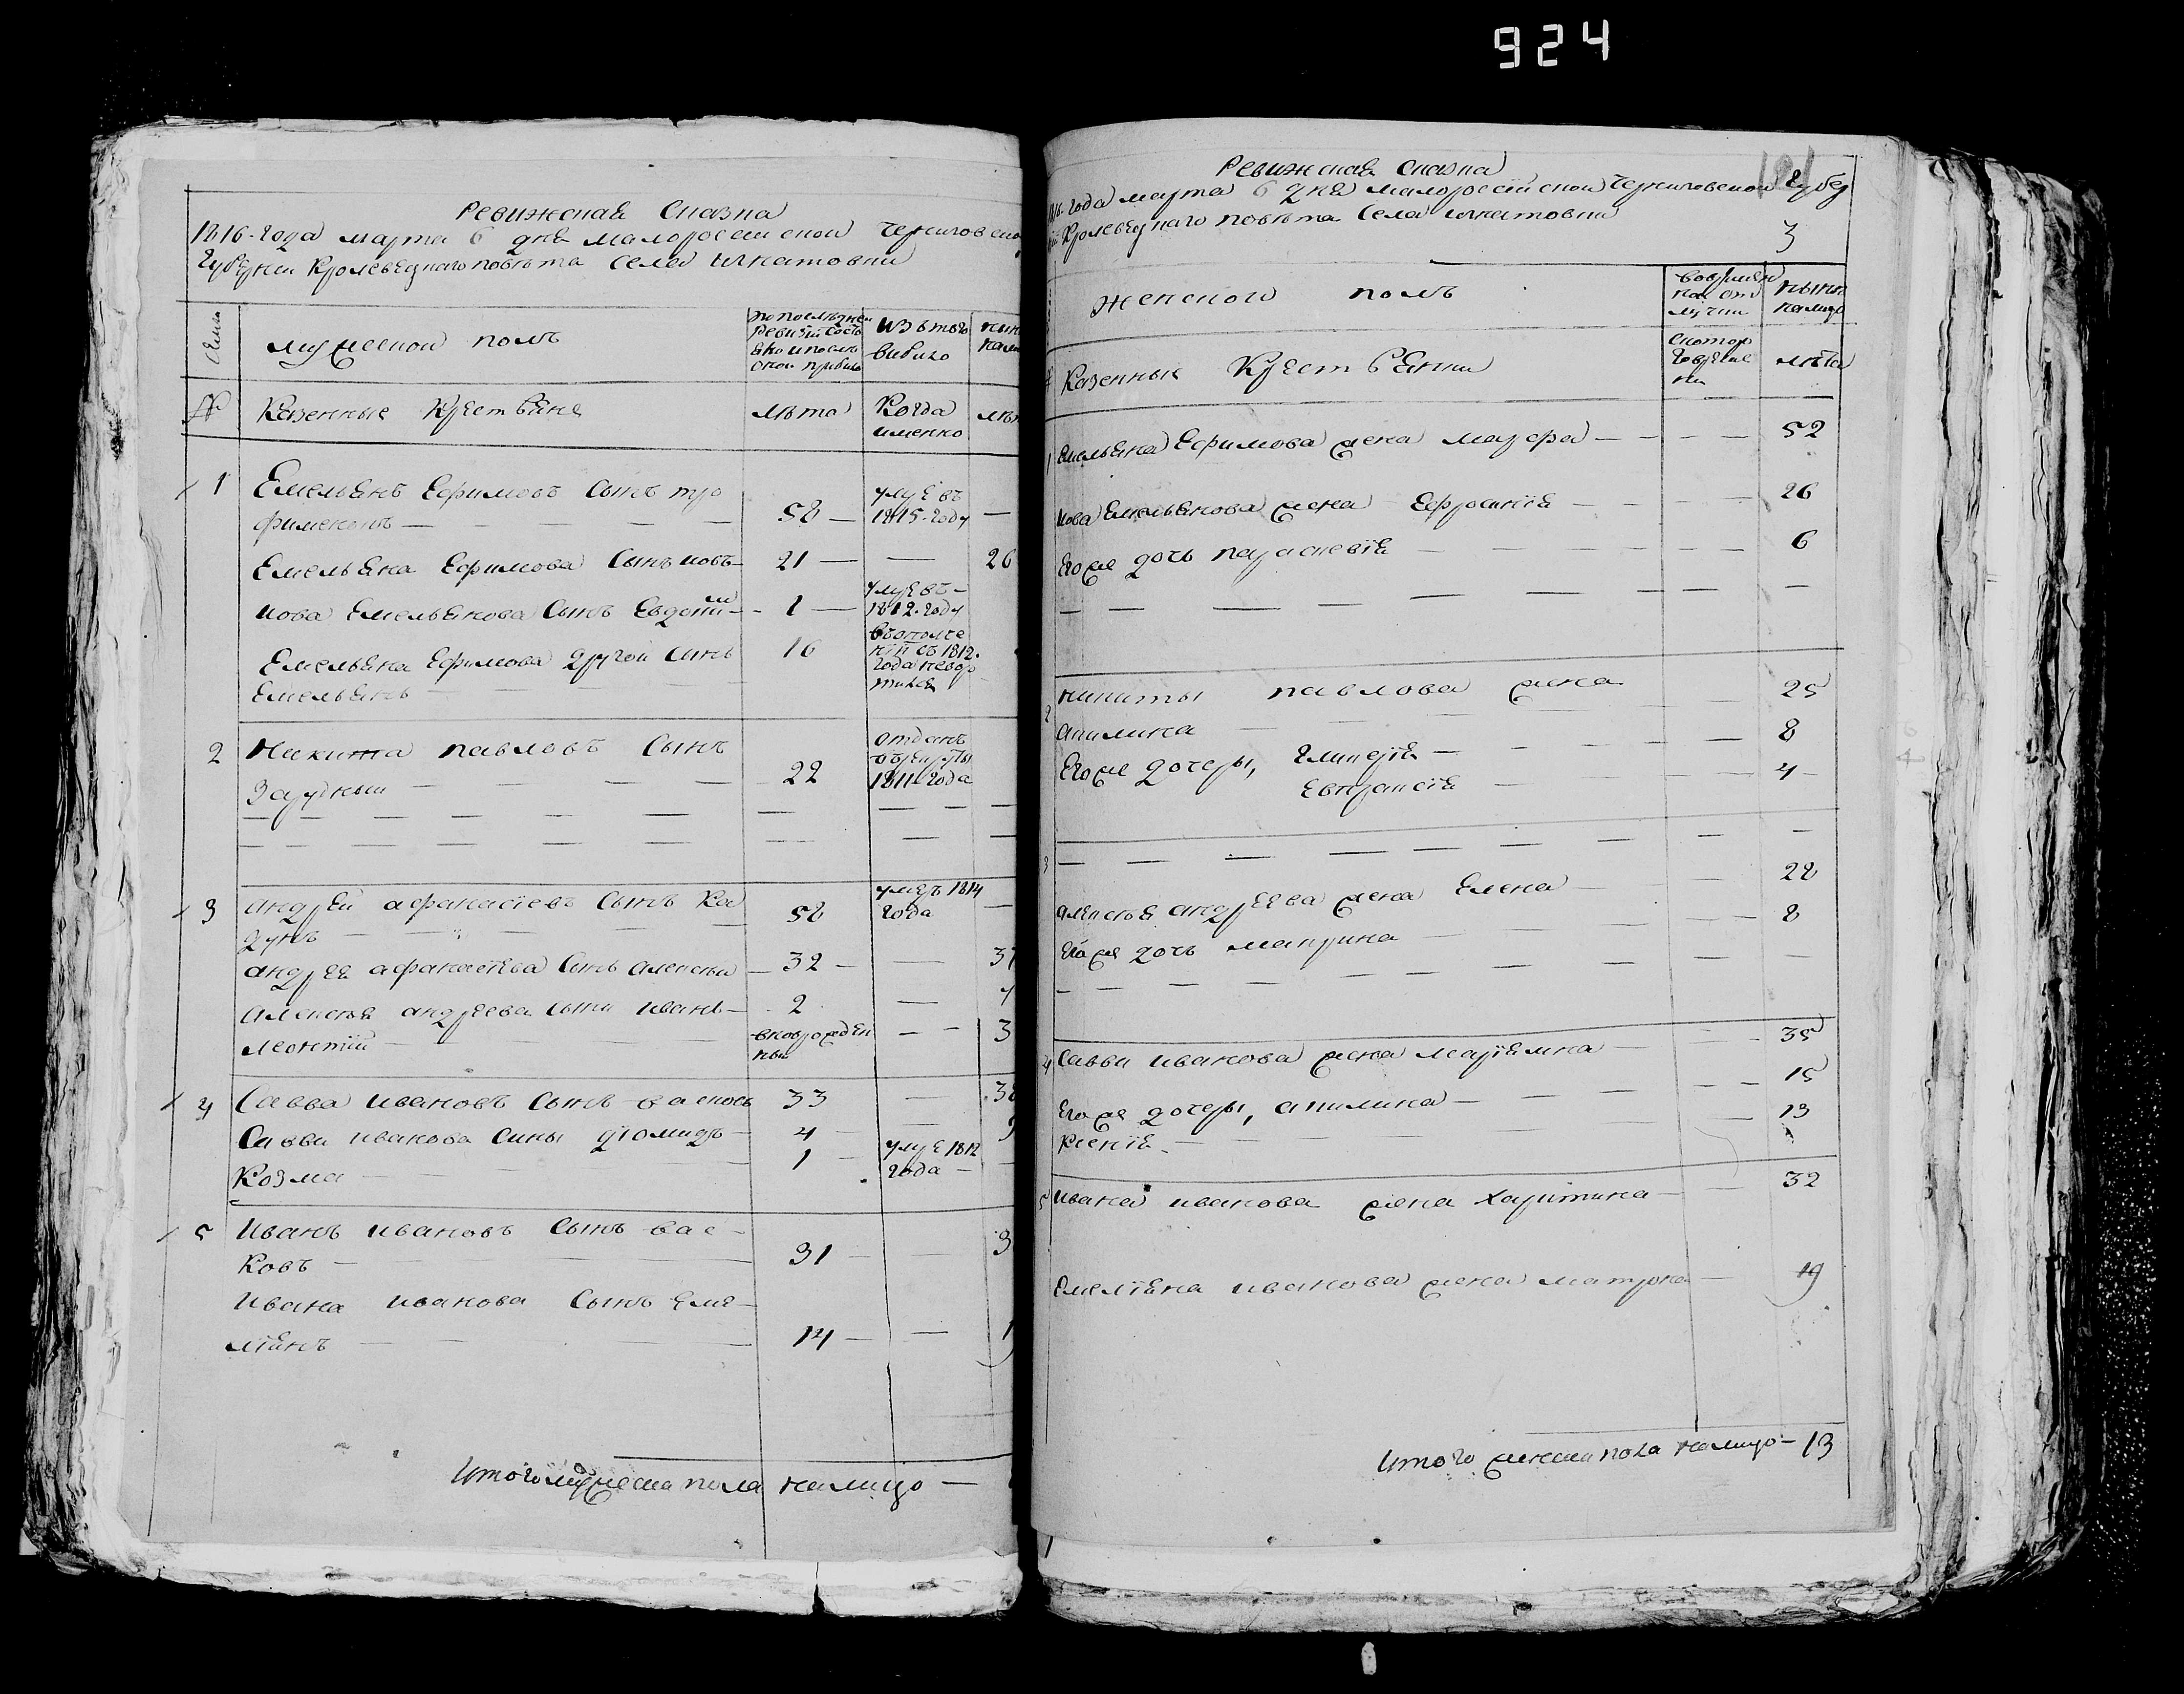 924
Ревижская Сказка
1816-года марта 6 дня малороссийской Черниговско
Губернии Кролевецкаго повѣта села
Семьи
мужеской полъ
по послѣдней
Ревизіи состо
яло и послѣ
оной прибыло
изъ того
выбыло
нын
№
Казенные Крестьяне
лѣта
Когда
именно
лѣт
1 Емельянъ Ефимовъ Сынъ тро
фименокъ — 58 —
умре въ
1815-году —
Емельяна Ефимова Сынъ иовъ — 21 — — 26
иова Емельянова Сынъ — 1 —
умре въ
1812-году
Емельяна Ефимова другой сынъ 16
Емельянъ
въополче
ніи съ 1812.
года невоз
2 Никита павловъ Сынъ
— 22
отданъ
1811-года
3 андрей афанасіевъ Сынъ Ка
дунъ — 58
умре 1814
года —
андрея афанасіева Сынъ алексей — 32 — — 37
алексея андреева сыни иванъ — 2 — 7
леонтій —
вноврожден
ны — 3
4 Савва ивановъ Сынъ васковъ 33 — 38
Савви иванова сины діомидъ — 4 — — 9
Козма — 1 —
умре 1812
года —
5 Иванъ ивановъ Сынъ вас-
ковъ — 31 — — 3
Ивана иванова Сынъ Еме-
ліянъ — 14 — — 1
Итого мужеска пола налицо —
Ревижская Сказка
181
1816-года марта 6 дня малоросійской Черниговской Губер
ніи Кролевецкаго повѣта села
3
женского полъ
Вовремен
ной от
лучки
нынѣ
налицо
Казенные Крестьянки
скотор
лѣта
1 Емельяна Ефимова жена — 52
иова Емельянова жена Ефросинія — 26
Его же дочь параскевія — 6
2 никиты павлова жена 25
акилина —
Его же дочери, гликерія — 8
Евпраксія — 4
3
алексея андреева жена Елена — 28
Его же дочь макрина — 8
4 Савви иванова жена маріямна — 35
Его же дочери, акилина — 15
Ксенія — 13
5 ивана иванова жена харитина — 32
Емеліяна иванова жена матрона — 19
Итого женска пола налицо — 13